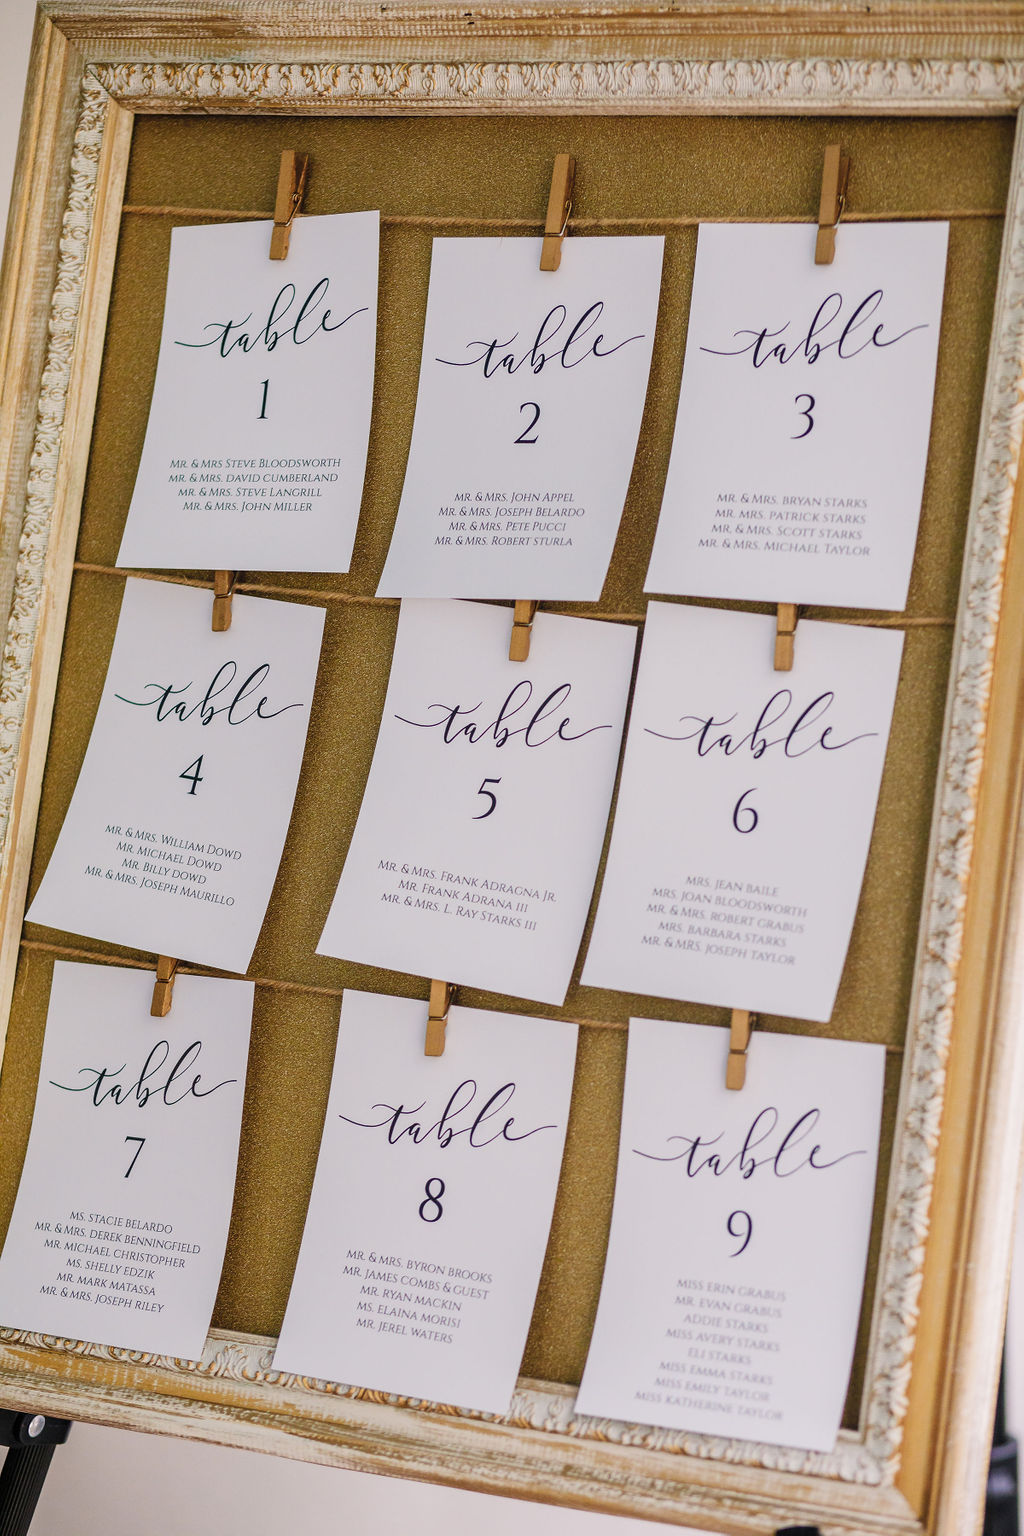 table
1
MR. & MRS STEVE BLOODSWORTH
MR. & MRS. DAVID CUMBERLAND
MR. & MRS. STEVE LANGRILL
MR. & MRS. JOHN MILLER
table
2
MR. & MRS. JOHN APPEL
MR. & MRS. JOSEPH BELARDO
MR. & MRS. PETE PUCCI
MR. & MRS. ROBERT STURLA
table
3
MR. & MRS. BRYAN STARKS
MR. MRS. PATRICK STARKS
MR. & MRS. SCOTT STARKS
MR. & MRS. MICHAEL TAYLOR
table
4
MR. & MRS. WILLIAM DOWD
MR. MICHAEL DOWD
MR. BILLY DOWD
MR. & MRS. JOSEPH MAURILLO
table
5
MR. & MRS. FRANK ADRAGNA JR.
MR. FRANK ADRANA III
MR. & MRS. L. RAY STARKS III
table
6
MRS. JEAN BAILE
MRS. JOAN BLOODSWORTH
MR. & MRS. ROBERT GRABUS
MRS. BARBARA STARKS
MR. & MRS. JOSEPH TAYLOR
table
7
MS. STACIE BELARDO
MR. & MRS. DEREK BENNINGFIELD
MR. MICHAEL CHRISTOPHER
MS. SHELLY EDZIK
MR. MARK MATASSA
MR. & MRS. JOSEPH RILEY
table
8
MR. & MRS. BYRON BROOKS
MR. JAMES COMBS & GUEST
MR. RYAN MACKIN
MS. ELAINA MORISI
MR. JEREL WATERS
table
9
MISS ERIN GRABUS
MR. EVAN GRABUS
ADDIE STARKS
MISS AVERY STARKS
ELI STARKS
MISS EMMA STARKS
MISS EMILY TAYLOR
MISS KATHERINE TAYLOR